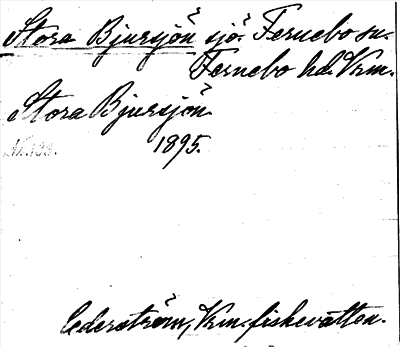 Stora Bjursjön sjö. Fernebo sn.
Fernebo hd. Vrm.
Stora Bjursjön.
1895.
Cederström, Vrm. fiskevatten.